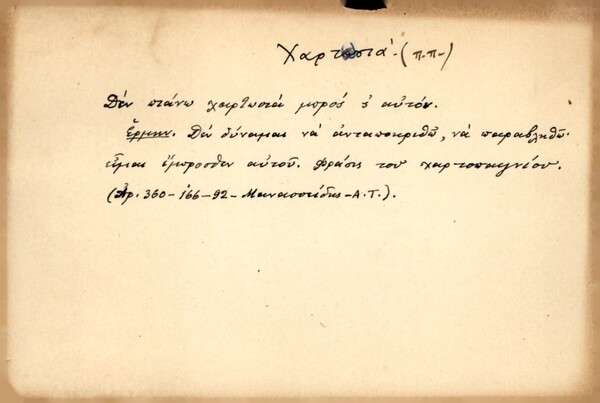 Χαρτωσιά.- (π.π-)
Δὲν πιάνω χαρτωσιά μπρός σ αὐτόν.
Ἑρμην. Δὲν δύναμαι νὰ ἀνταποκριθῶ, νὰ παραβληθῶ
εἶμαι ἔμπροσθεν αὐτοῦ. Φράσις του χαρτοπαιγνίου.
(Ἀρ. 360-166-92-Μανασσείδης-Α.Τ.).